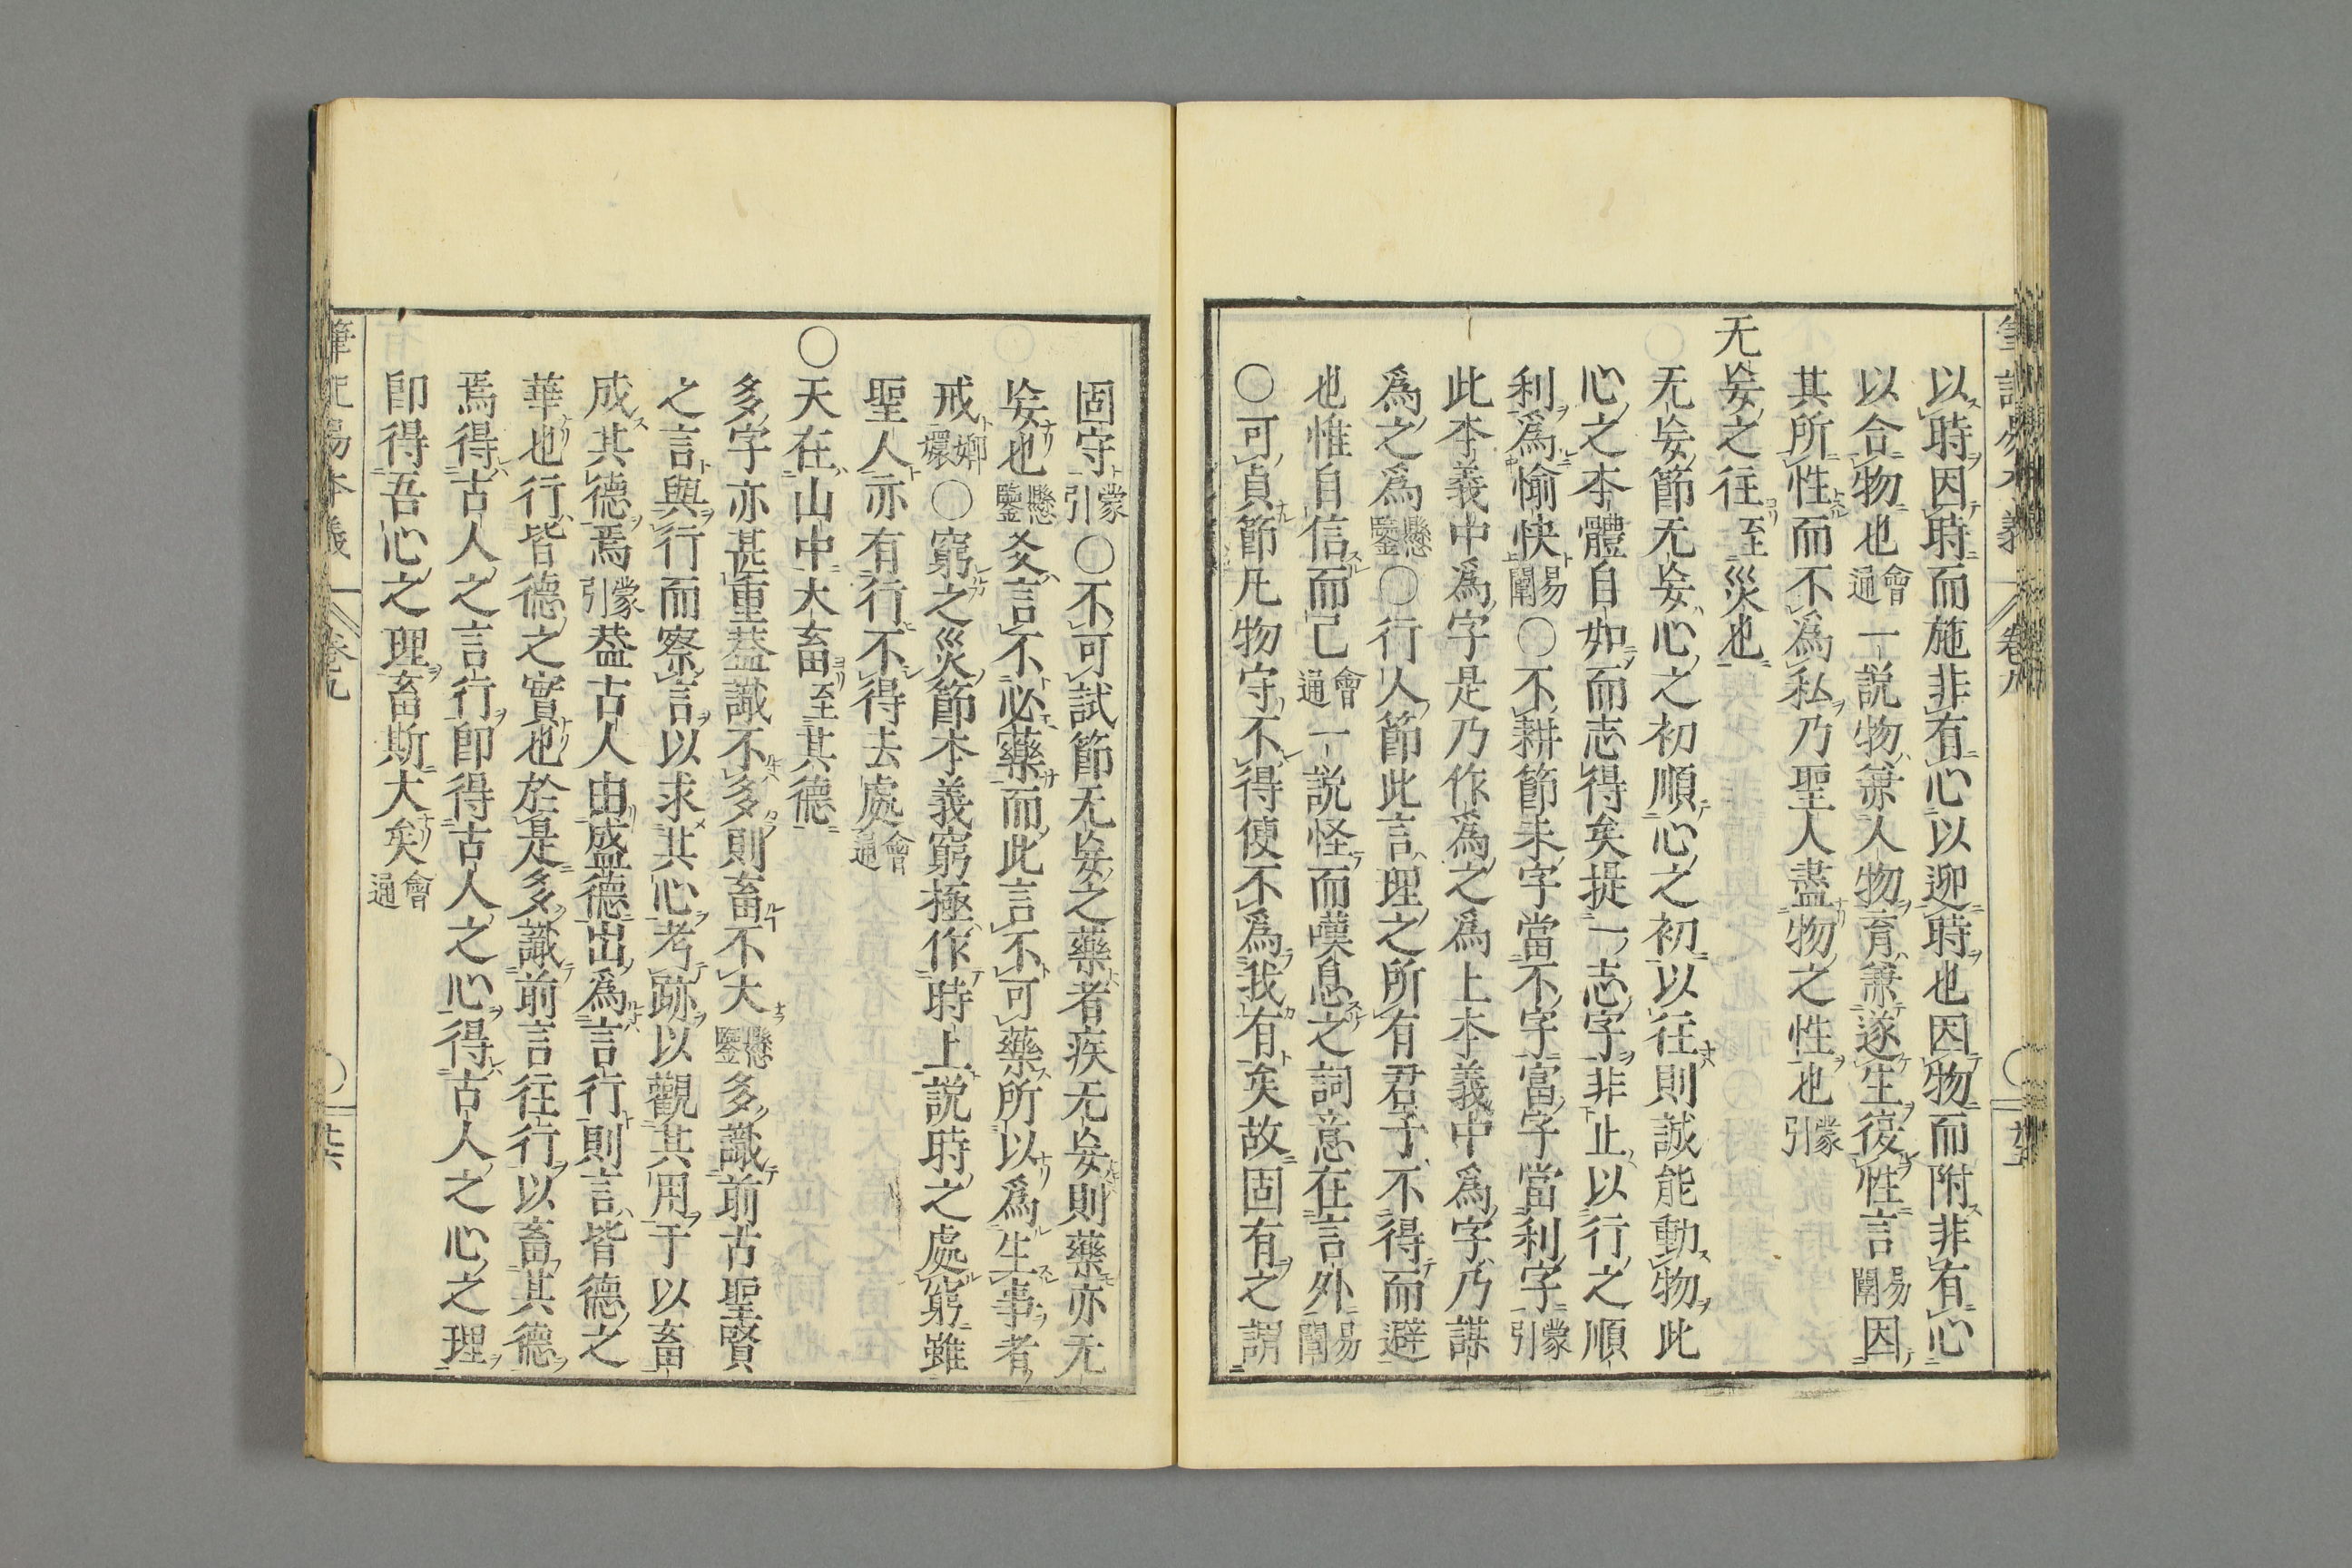 以時因時而施非有心以迎時也因物而附非有心
以合物也會通一説物兼人物育兼遂生復性言易闡因
其所性而不爲私乃聖人盡物之性也蒙引
无妄之往至災也
无妄節无妄心之初順心之初以往則誠能動物此
心之本體自如而志得矣提一志字非止以行之順
利爲愉快易闡○不耕節未字當不字富字當利字蒙引
此本義中爲字是乃作爲之爲上本義中爲字乃謀
爲之爲懸鑒○行人節此言理之所有君子不得而避
也惟自信而已會通一説怪而嘆息之詞意在言外易闡
○可貞節凡物守不得便不爲我有矣故固有之謂
固守蒙引○不可試節无妄之藥者疾无妄則藥亦无
妄也懸鑒爻言不必藥而此言不可藥所以爲生事者
戒嫏嬛○窮之災節本義窮極作時上説時之處窮雖
聖人亦有行不得去處會通
○天在山中大畜至其德
多字亦甚重葢識不多則畜不大懸鑒多識前古聖賢
之言與行而察言以求其心考跡以觀其用于以畜
成其德焉蒙引葢古人由盛德出爲言行則言皆德之
華也行皆德之實也於是多識前言往行以畜其德
焉得古人之言行卽得古人之心得古人之心之理
卽得吾心之理畜斯大矣會通
筆記易本義 卷九